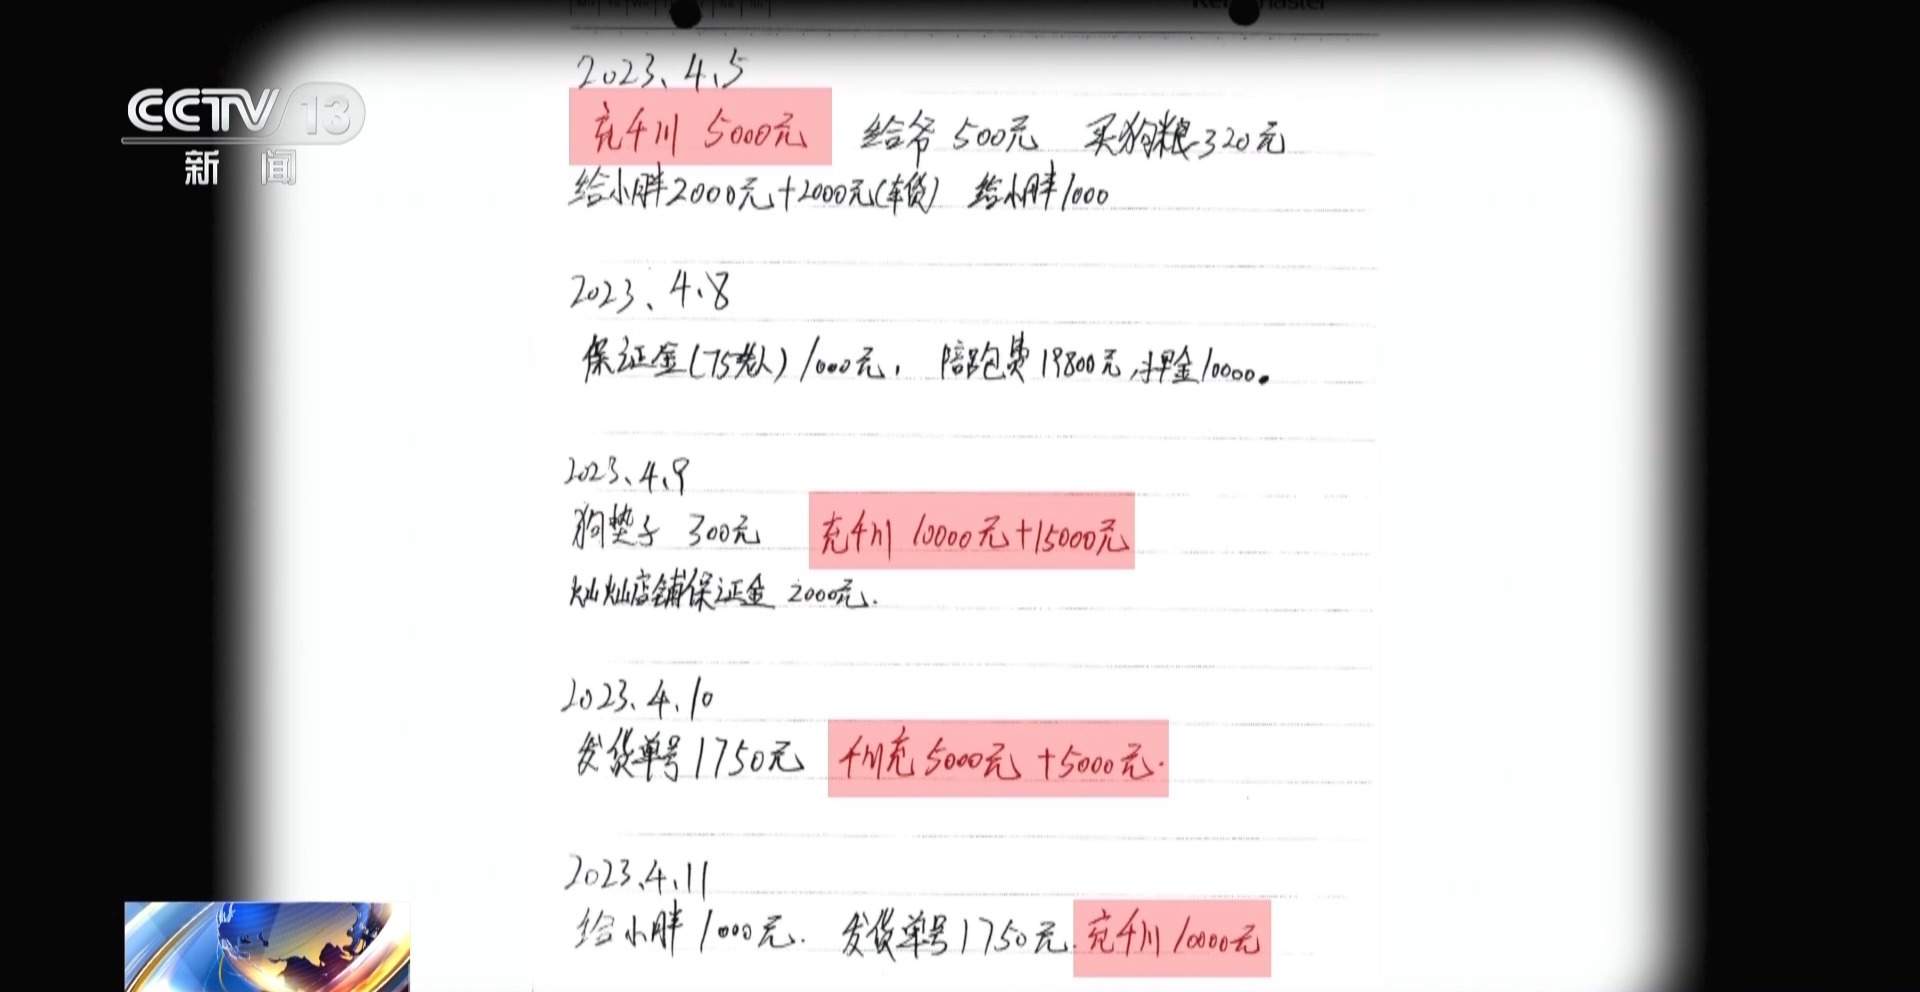 CCTV 13
新闻
2023、4、5
充千川 5000元 给爷 500元 买狗粮320元
给小胖2000元+2000元(车贷) 给小胖1000
2023、4、8
保证金(75老人)1000元, 陪跑费19800元,押金10000。
2023、4、9
狗垫子 300元 充千川 10000元+15000元
灿灿店铺保证金 2000元.
2023、4、10
发货单号1750元 千川充5000元 +5000元.
2023、4、11
给小胖1000元. 发货单号1750元. 充千川10000元